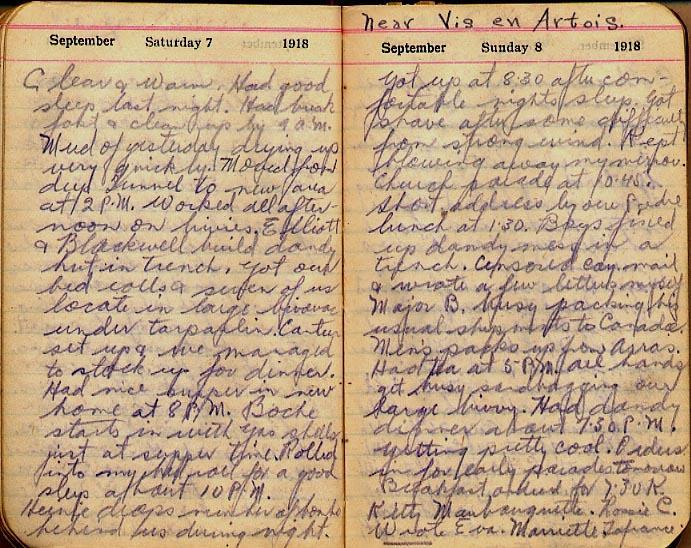 September Saturday 7 1918
Clear & warm. Had good
sleep last night. Had break
fast & clean up by 9 a.m.
Mud of yesterday drying up
very quickly. Moved from
deep tunnel to new area
at 12 P.M. Worked all after-
noon on bivies. Elliott
& Blackwell build dandy
hut in trench. Got our
bed rolls & seven of us
locate in large bivouac
under tarpaulin. Canteen
set up & we managed
to stock up for dinner.
Had nice supper in new
home at 8 P.M. Boche
starts in with gas shells
just at supper time. Rolled
into my bed roll for a good
sleep about 10 P.M.
Heinie drops number of bombs
behind us during night.
Near Vis en Artois.
September Sunday 8 1918
Got up at 8.30 after com-
fortable nights sleep. Got
shave after some difficulty
from strong wind. Kept
blowing away my mirror.
Church parade at 10.45.
Short address by our Padre
lunch at 1.30. Boys fixed
up dandy mess in a
trench. Censored coy. mail
& wrote a few letters myself
Major B. busy packing his
usual shipments to Canada.
Men's packs up from Arras.
Had tea at 5 P.M. All hands
get busy sandbagging our
large bivvy. Had dandy
dinner about 7.30 P.M.
getting pretty cool. Orders
in for early parades tomorrow
Breakfast ordered for 7.30
Keith C.
Wrote Eva. Marriette